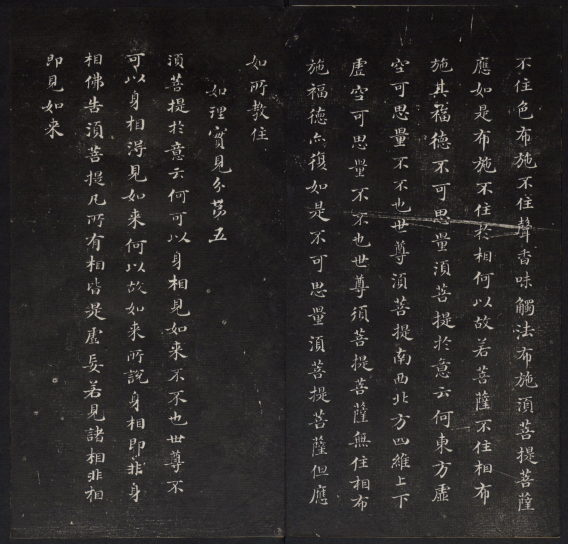 不住色布施不住聲香味觸法布施須菩提菩薩
應如是布施不住於相何以故若菩薩不住相布
施其福德不可思量須菩提於意云何東方虛
空可思量不不也世尊須菩提南西北方四維上下
虛空可思量不不也世尊須菩提菩薩無住相布
施福德亦復如是不可思量須菩提菩薩但應
如所教住
如理實見分第五
須菩提於意云何可以身相見如来不不也世尊不
可以身相得見如来何以故如来所說身相即非身
相佛告須菩提凡所有相皆是虛妄若見諸相非相
即見如来